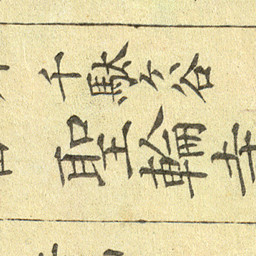 千駄ケ谷
聖輪寺